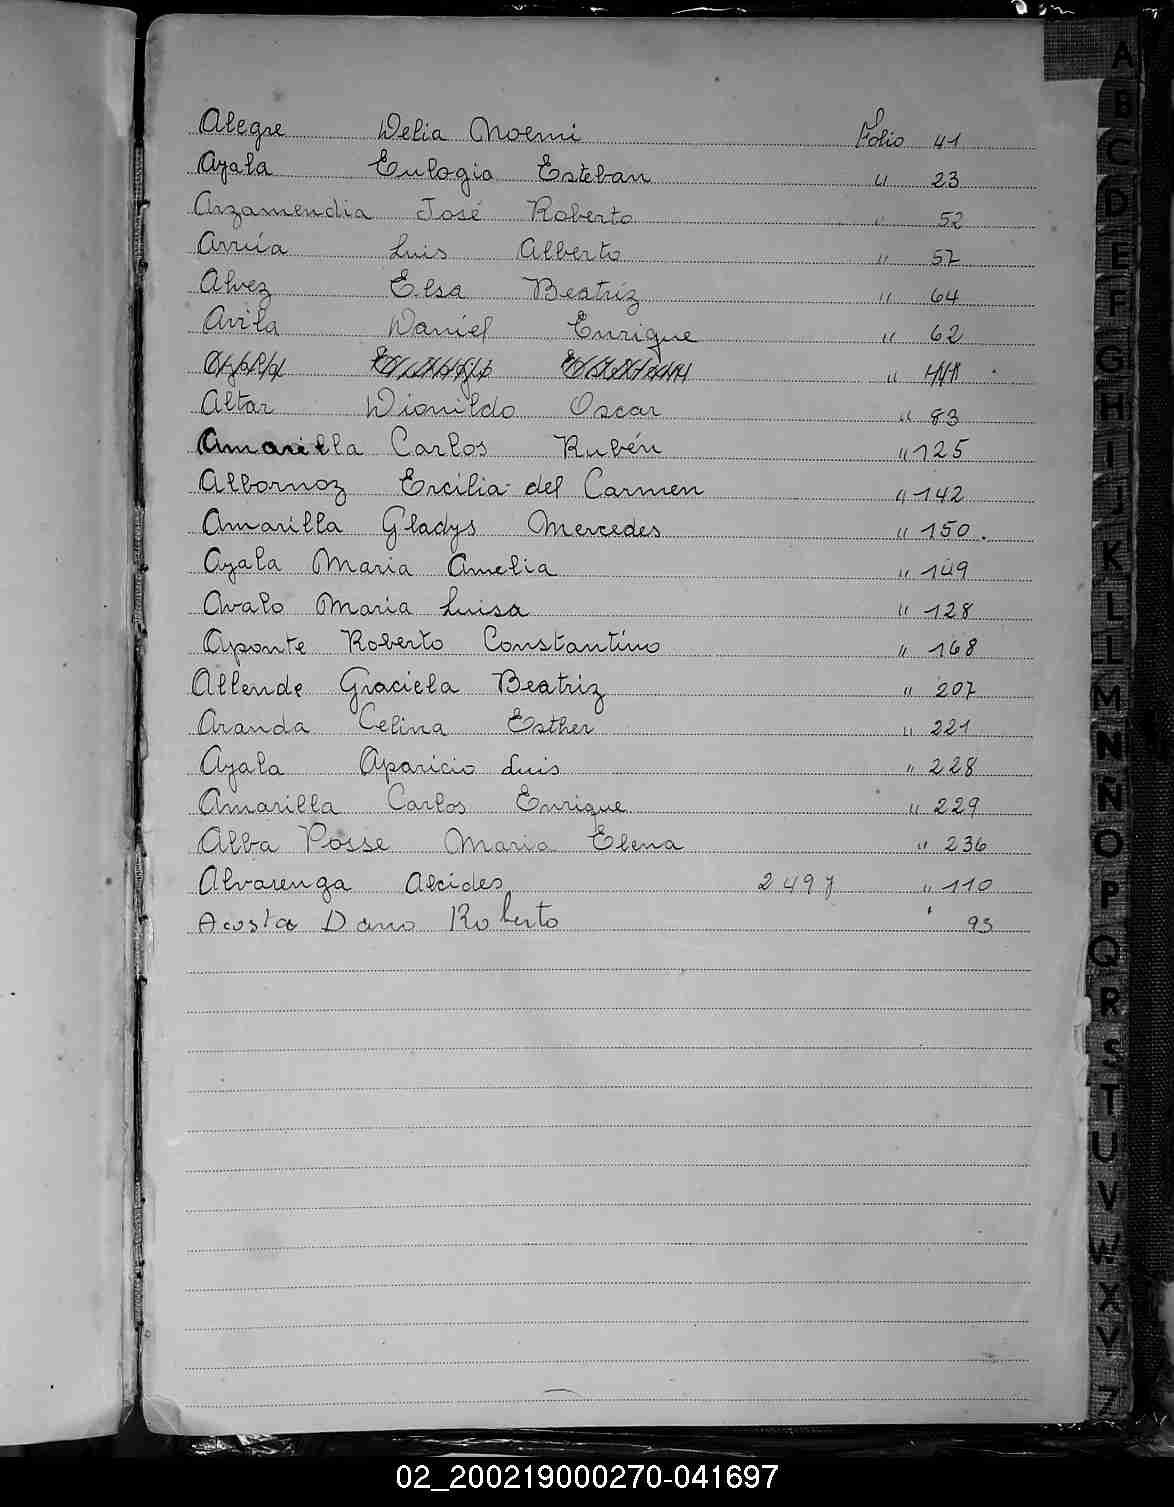 Alegre Delia Noemi Folio 41
Ayala Eulogia Esteban " 23
Arzamendia José Roberto " 52
Arrúa Luis Alberto " 57
Alvez Elsa Beatríz " 64
Avila Daniel Enrique " 62
Ayala "
Altar Dionildo Oscar " 83
Amarilla Carlos Rubén " 125
Albornoz Ercilia del Carmen " 142
Amarilla Gladys Mercedes " 150.
Ayala Maria Amelia " 149
Avalo Maria Luisa " 128
Aponte Roberto Constantino " 168
Allende Graciela Beatriz " 207
Aranda Celina Esther " 221
Ayala Aparicio Luis " 228
Amarilla Carlos Enrique " 229
Alba Posse Maria Elena " 236
Alvarenga Alcides 2497 " 110
Acosta Dario Roberto ' 93
A
B
C
D
E
F
G
H
I
J
K
L
LL
M
N
Ñ
O
P
Q
R
S
T
U
V
W
X
Y
Z
02_200219000270-041697